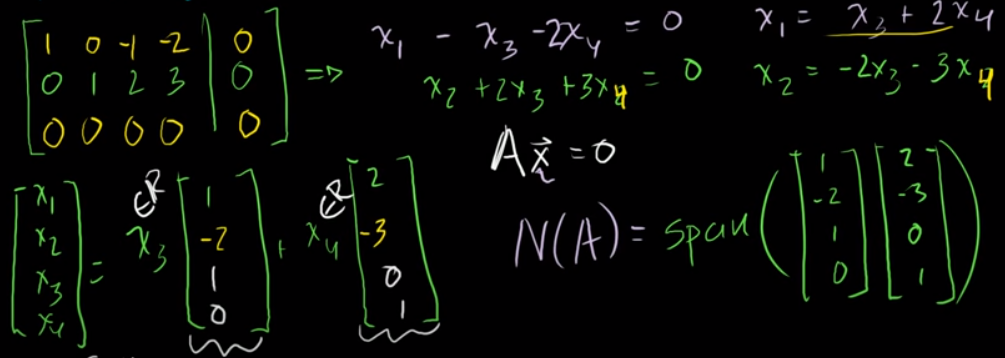 [ 1 0 -1 -2 | 0 ]
[ 0 1 2 3 | 0 ]
[ 0 0 0 0 | 0 ]
=>
x₁ - x₃ - 2x₄ = 0
x₂ + 2x₃ + 3x₄ = 0
x₁ = x₃ + 2x₄
x₂ = -2x₃ - 3x₄
Ax⃗ = 0
[x₁ x₂ x₃ x₄] = x₃ ∈R [1 -2 1 0] + x₄ ∈R [2 -3 0 1]
N(A) = span ( [1 -2 1 0] [2 -3 0 1] )